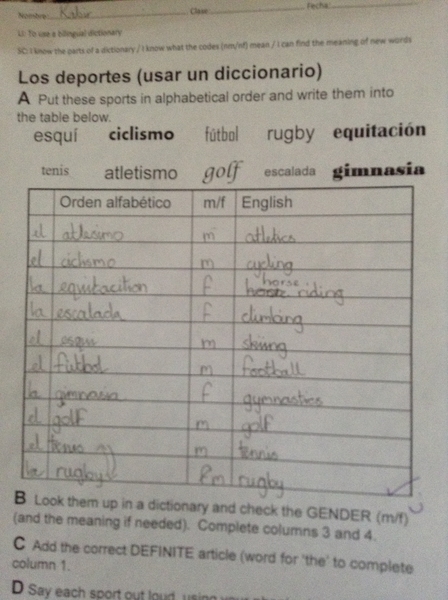 Nombre: Kabir Clase: Fecha:
LI: To use a bilingual dictionary
SC: I know the parts of a dictionary / I know what the codes (nm/nf) mean / I can find the meaning of new words
Los deportes (usar un diccionario)
A Put these sports in alphabetical order and write them into
the table below.
esquí ciclismo fútbol rugby equitación
tenis atletismo golf escalada gimnasia
Orden alfabético m/f English
el atletismo m athletics
el ciclismo m cycling
la equitacition f horse riding
la escalada f climbing
el esqui m skiing
el futbol m football
la gimnasia f gymnastics
el golf m golf
el tenis m tennis
la rugby m rugby
B Look them up in a dictionary and check the GENDER (m/f)
(and the meaning if needded). Complete columns 3 and 4.
C Add the correct DEFINITE article (word for 'the' to complete
column 1.
D Say each sport out loud, using your